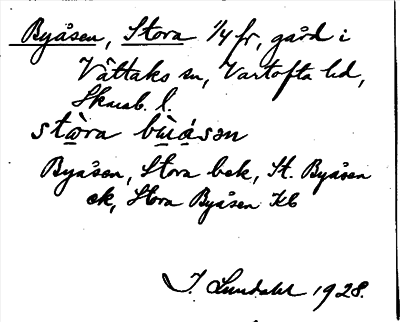 Byåsen, Stora 1/4 fr, gård i
Våttaks sn, Vartofta hd,
Skarab. l.
stòra bùåsən
Byåsen, Stora bek, St. Byåsen
ek, Stora Byåsen Kb
J. Lundahl 1928.